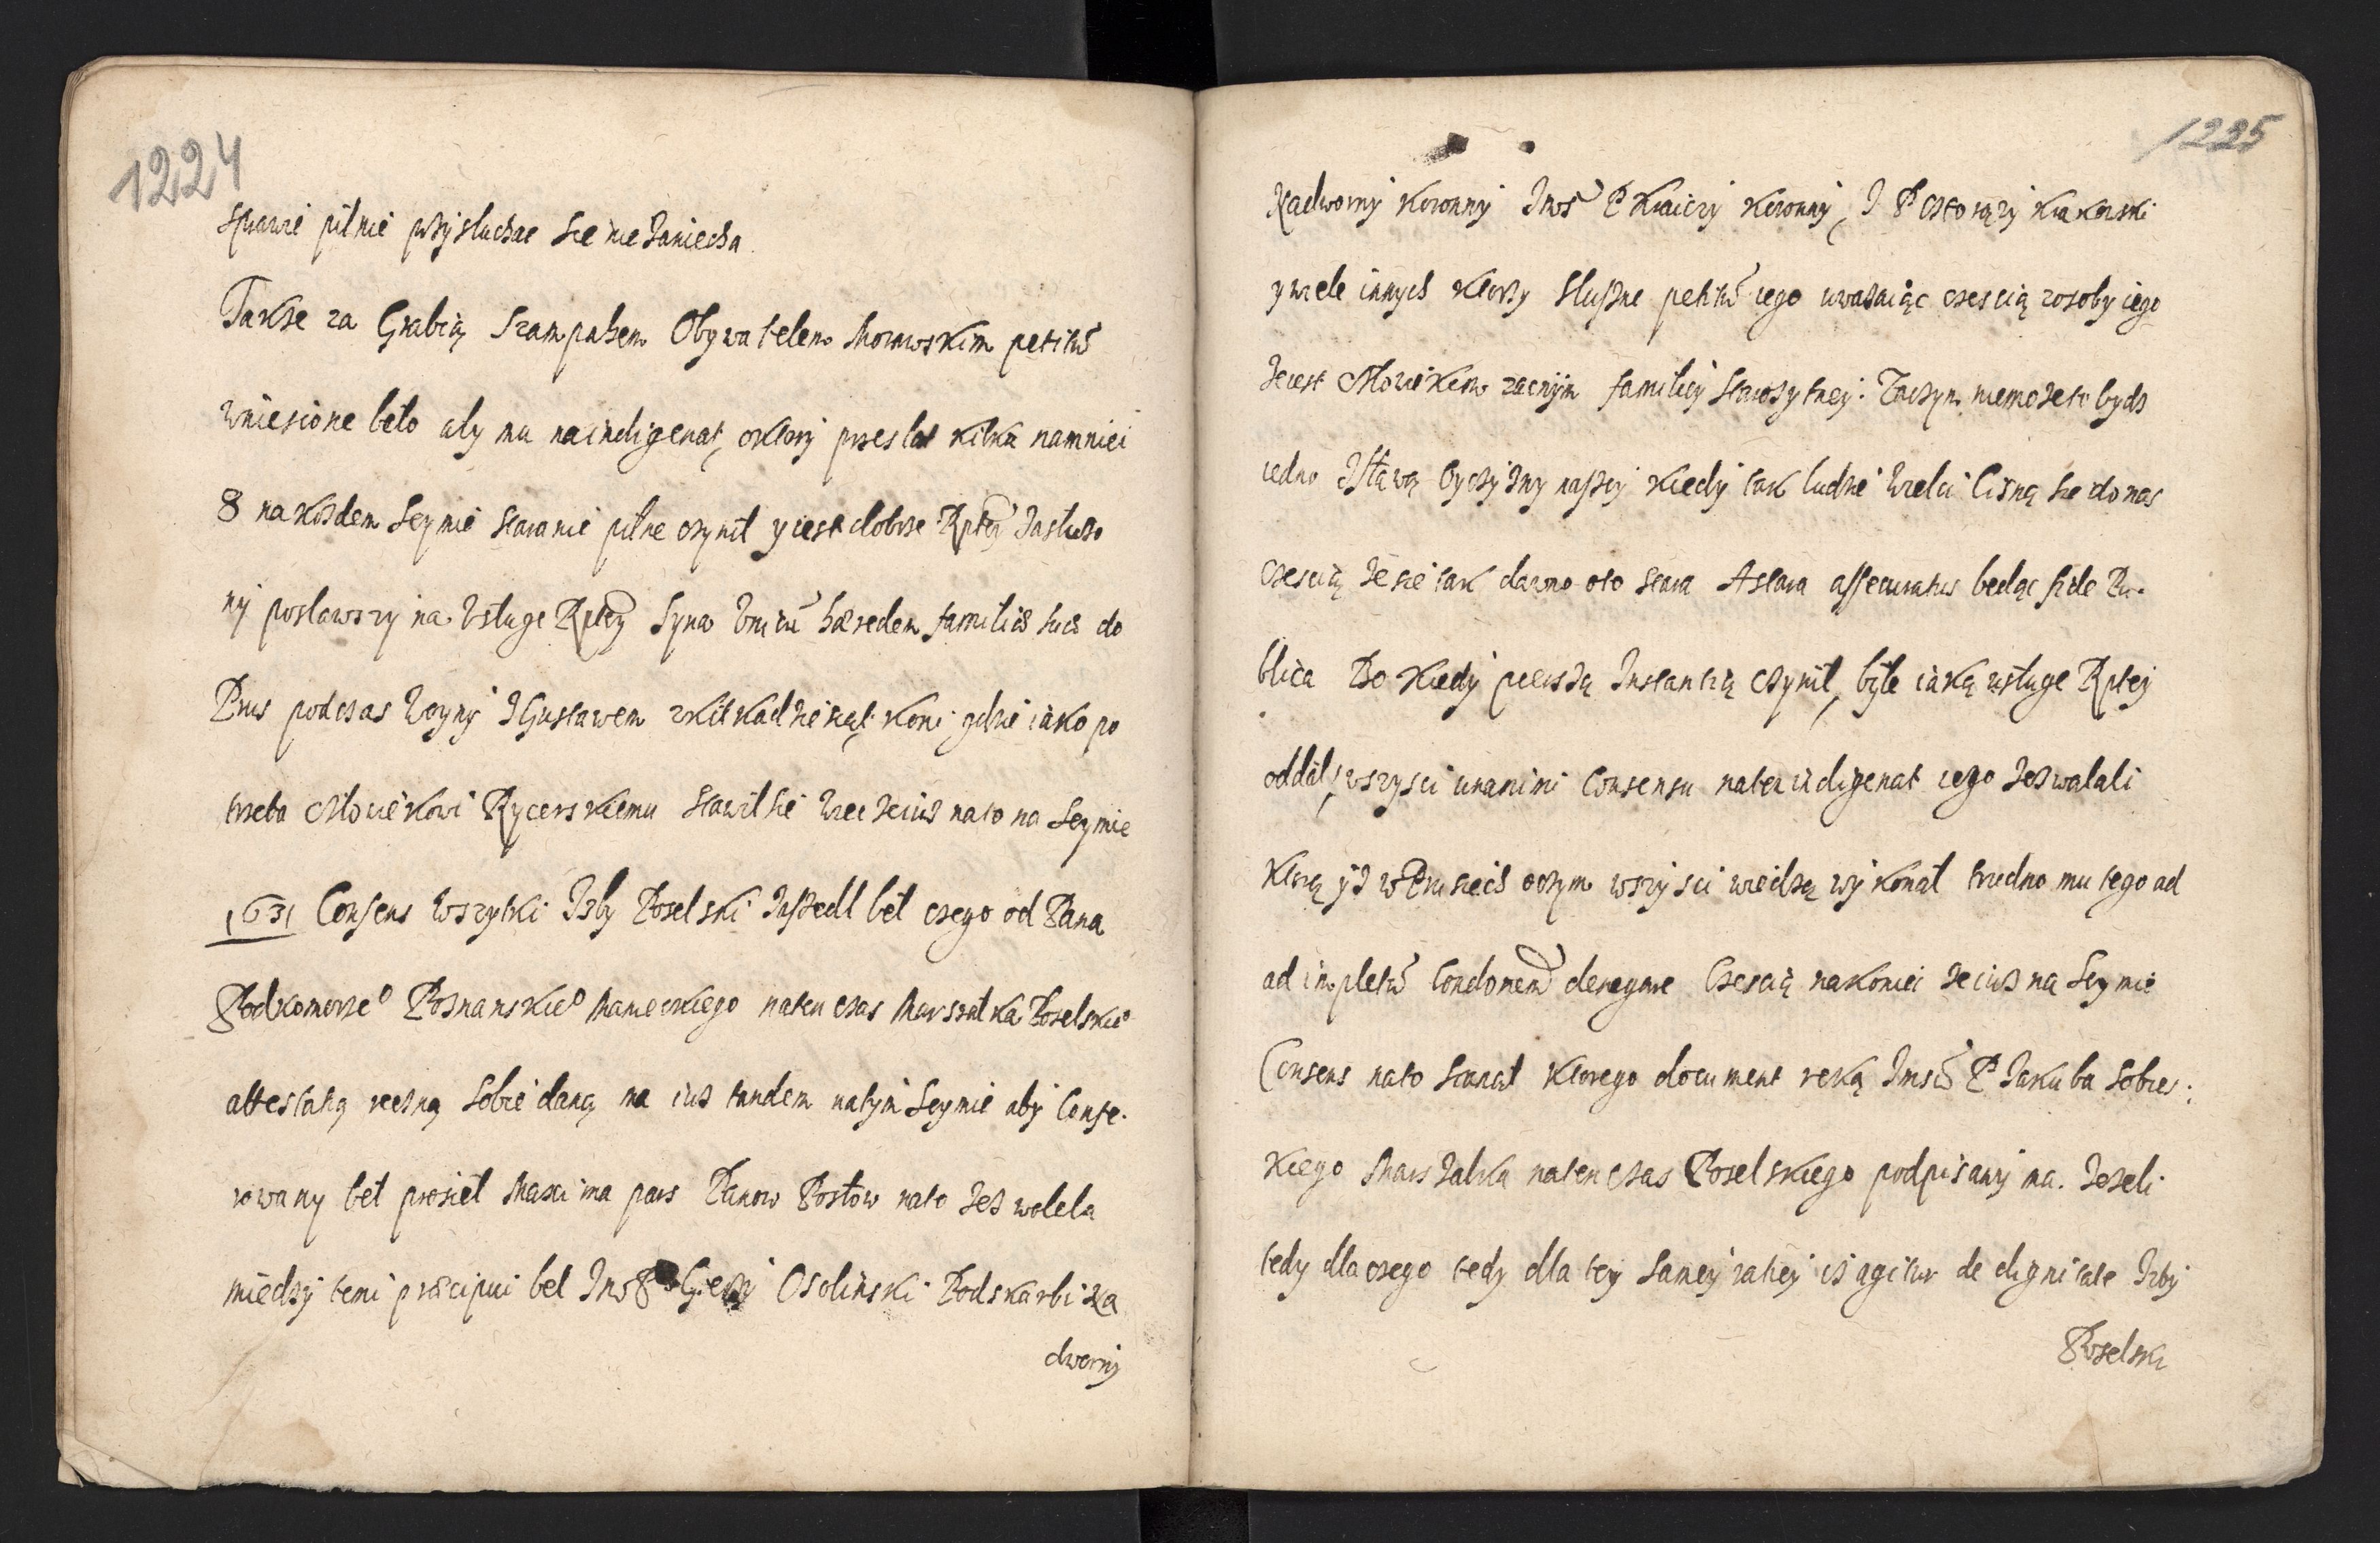 1224
sprawie pilnie przysłuchac sie nie zaniecha
Takze za Grabią Szampahem Obywatelem Morawskim petitũ
wniesione beło aby mu na indigenat, oktory przes lat kilka namniei
8 na kozdem Seymie staranie pilne czynił y iest dobrze Rptey zasłuzo
ny posławszy na Usługe Rptey Syna Unicũ hæredem familiæ suæ do
Prus podczas Woyny z Gustawem z kilkadziesiąt koni gdzie iako po
trzeba człowiekowi Rycerskiemu stawił sie wiec ze iusz na to na Seymie
1631 Consens wszytki Izby Poselski zaszedł beł czego od Pana
Podkomorzeº Posnanskieº naten czas Marszałka Poselskieº
attestatią reczną sobie daną ma iuz tandem na tym Seymie aby Confe-
rowany beł prosieł Maxima pars Panow Posłow na to zezwoleła
miedzy temi præcipui beł Jmś P Gierzy Osolinski Podskarbi Na
dworny
1225
Nadworny Koronny Jmś P Kraiczy Koronny, J P Chorązy
y wiele innych ktorzy słuszne petitũ iego uwazaiąc czescią z osoby iego
ze iest człowiekiem zacnym familiey starozytney: Zaczym niemoze to bydz
iedno z sławą Oyczyzny naszey kiedy tak ludzie wielci cisną sie do nas
czescią ze sie tak dawno oto stara A stara assecuratus bedąc fide Pu-
blica Bo kiedy pierszą Instantią czynił, byle iaką usługe Rptey
oddał, wszysci unanimi Consensu na ten indigenat iego zezwalali
Ktorą yz w Prusiech o czym wszysci wiedzą wykonał trudno mu tego ad
ad impletũ Condonem denegare Czescią nakoniec ze iusz na Seymie
Consens na to stanął ktorego document reką Jmści P Jakuba Sobies-
kiego Marszałka naten czas Poselskiego podpisany ma. Jezeli
tedy dla czego tedy dla tey samey ratiey isz agitur de dignitate Izby
Poselski